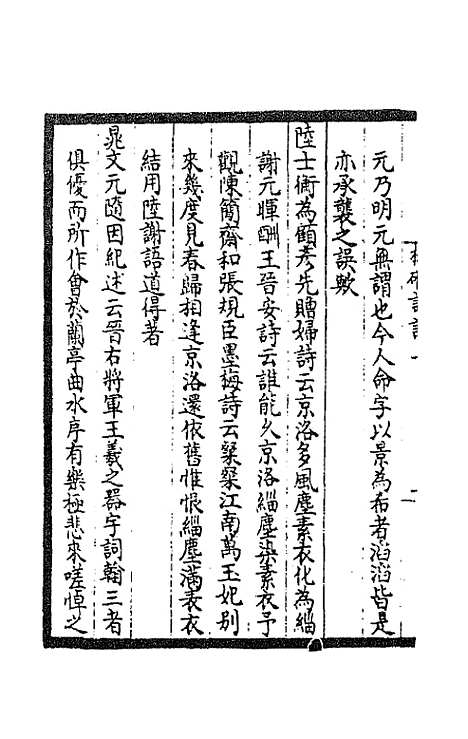 元乃明元無謂也今人命字以景為布者滔滔皆是
亦承襲之誤歟
陸士衡為顧彥先贈婦詩云京洛多風塵素衣化為緇
謝元暉酬王晉安詩云誰能久京洛緇塵染素衣予
觀陳簡齋和張規臣墨梅詩云粲粲江南萬玉妃別
來幾度見春歸相逢京洛還依舊惟恨緇塵滿素衣
結用陸謝語道得著
晁文元隨因紀述云晉右將軍王羲之器宇詞翰三者
俱優而所作會於蘭亭曲水序有樂極悲來嗟悼之